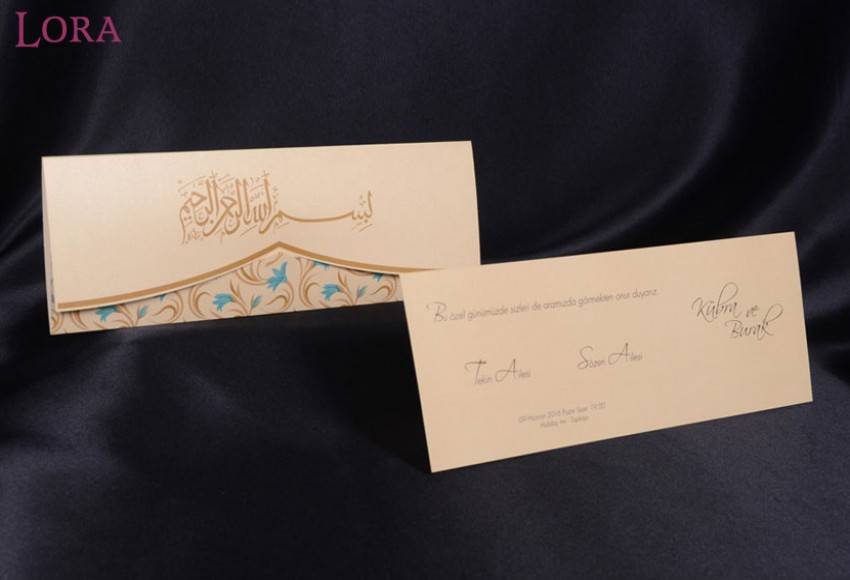 LORA
بسم الله الرحمن الرحيم
Bu özel günümüzde sizleri de aramızda görmekten onur duyarız.
Kübra ve
Burak
Tekin Ailesi
Sözen Ailesi
09 Haziran 2016 Pazar Saat: 19:00
Holiday Inn - Topkapı